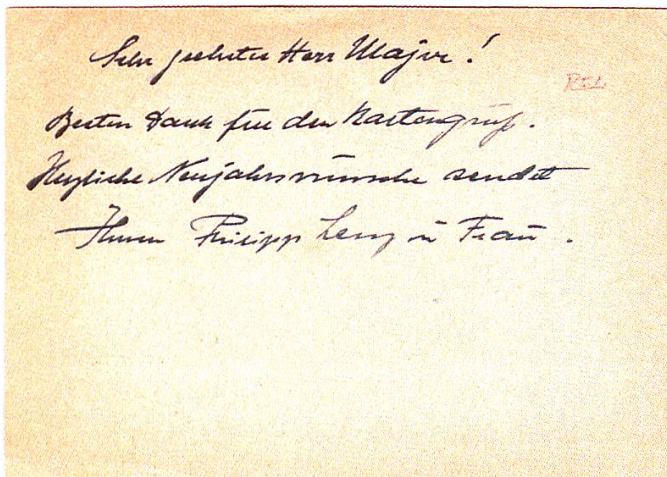 Sehr geehrter Herr Major!
Besten Dank für den Kartengruß.
Herzliche Neujahrswünsche sendet
Ihnen Philipp Lenz u Frau.